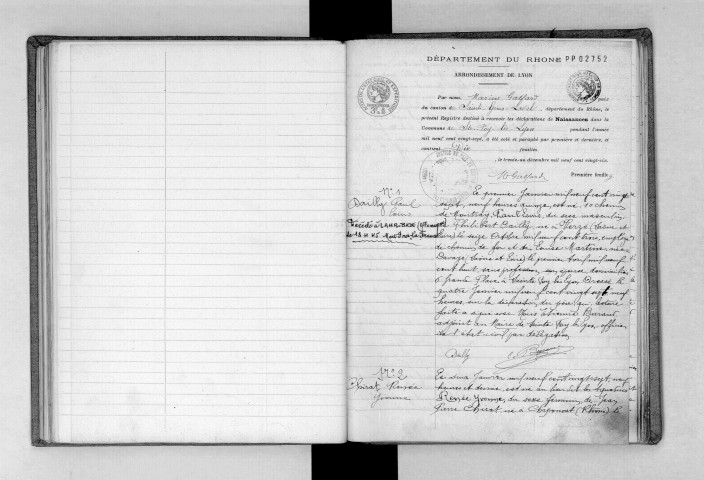 DÉPARTEMENT DU RHONE PP02752
ARRONDISSEMENT DE LYON
Par nous, Marius Gaspard
du canton de Saint Genis Laval, département du Rhône, le
présent Registre destiné à recevoir les déclarations de Naissances dans la
Commune de Ste Foy les Lyon pendant l'année
mil neuf cent vingt-sept, a été coté et paraphé par première et dernière, et
contient Dix feuillets,
le trente-un décembre mil neuf cent vingt-six.
Première feuille
N° 1
Bailly Paul
Louis
Décédé à LAHR
le 18 4 45 Mort Pour la France
Le premier Janvier mil neuf cent vingt
sept, neuf heures quinze, est né, 10 chemin
de Montray, Paul Louis, du sexe masculin,
de Philibert Bailly né à (Saône et
Loire) le seize Octobre mil neuf cent trois, employé
de chemin de fer et de Louise Martine née
(Saône et Loire) le premier mil neuf
cent huit, sans profession, son épouse domiciliés
6 grande Place à Sainte Foy les Lyon. Dressé le
quatre Janvier mil neuf cent vingt sept neuf
heures, sur la déclaration du père qui, lecture
faite a signé avec Nous
adjoint au Maire de Sainte Foy les Lyon, officier
de l'état civil par délégation
Bailly
N° 2
Chirat Renée
Yvonne
Le deux Janvier mil neuf cent vingt sept, neuf
heures et demie, est née au lieu dit les Aqueducs
Renée Yvonne, du sexe féminin, de Jean
Pierre Chirat né à (Rhône) le